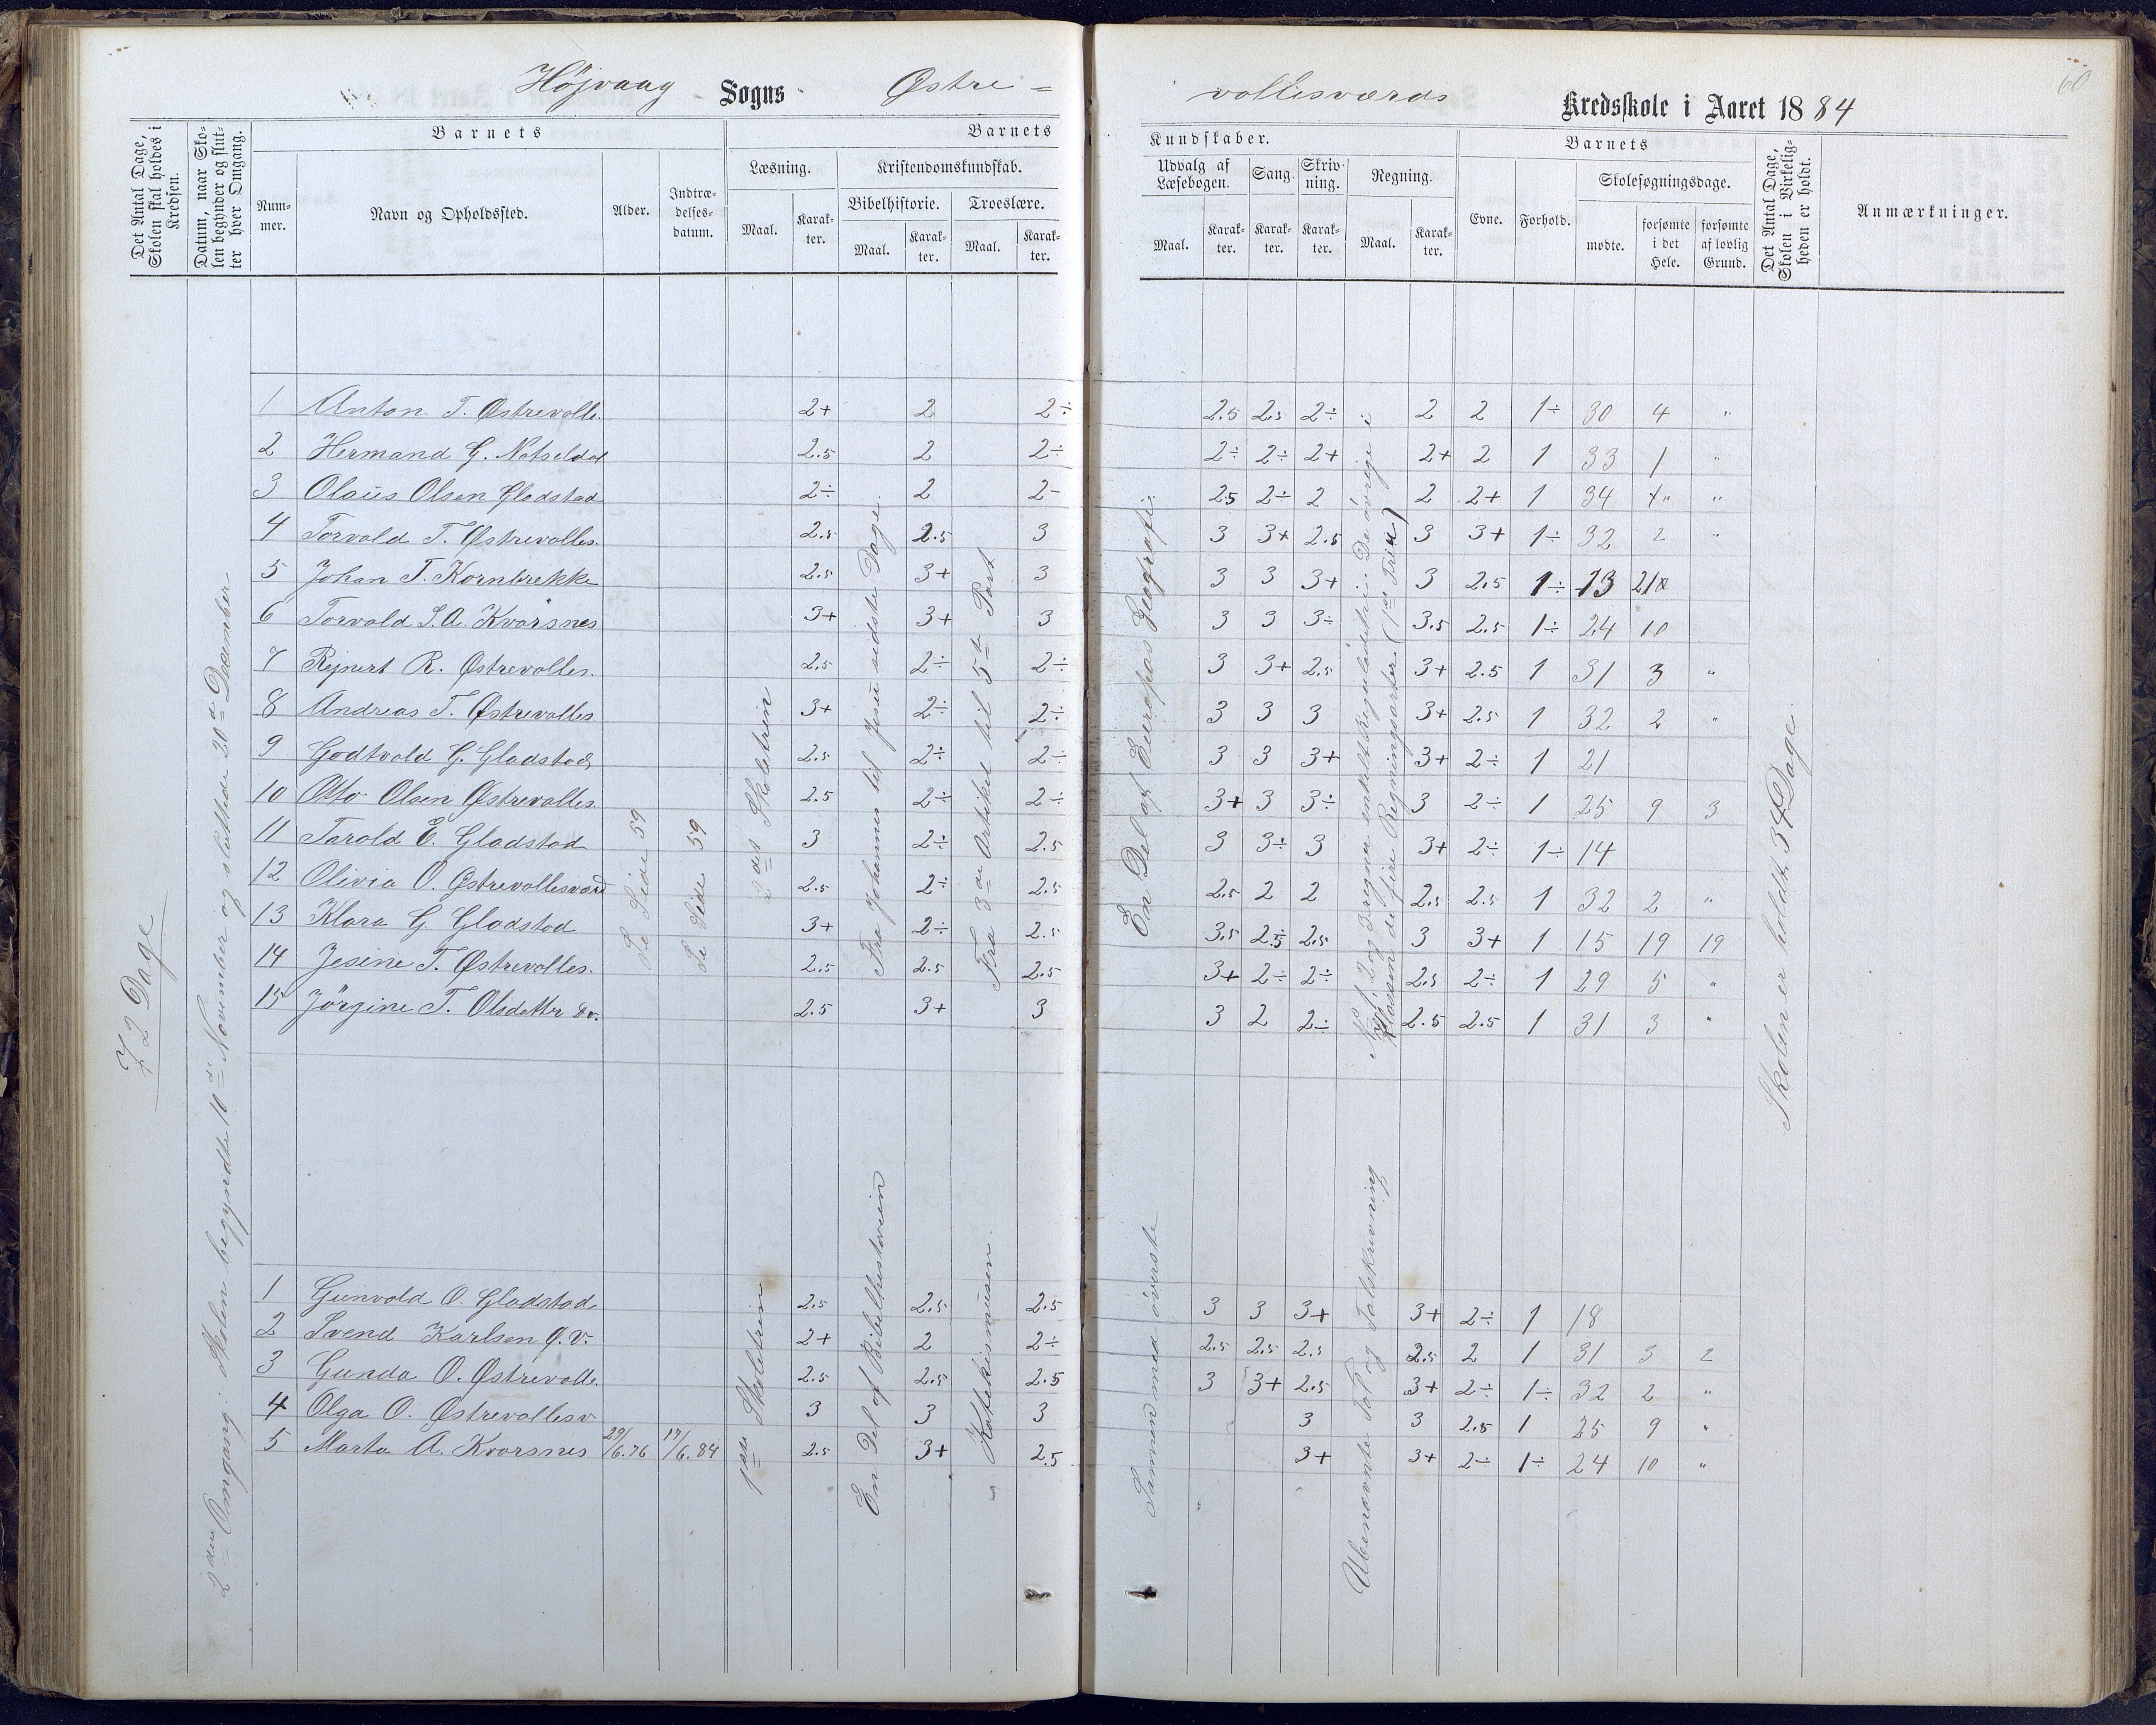 Højvaag Sogns Østre =
vollesværds Kredsskole i Aaret 1884
60
Det Antal Dage, Skolen skal holdes i Kredsen.
Datum, naar Skolen begynder og slutter hver Omgang.
Barnets
Barnets
Kundskaber.
Barnets
Nummer.
Navn og Opholdssted.
Alder.
Indtrædelsesdatum.
Læsning.
Kristendomskundskab.
Bibelhistorie.
Troeslære.
Maal. Karakter. Maal. Karakter. Maal. Karakter.
Udvalg af Læsebogen. Sang. Skrivning. Regning.
Maal. Karakter. Karakter. Karakter. Maal. Karakter.
Evne. Forhold.
Skolesøgningsdage.
mødte. forsømte i det Hele. forsømte af lovlig Grund.
Det Antal Dage, Skolen i Virkeligheden er holdt.
Anmærkninger.
72 Dage
2den Omgang: Skolen begyndte 10de November og sluttede 20de December
Se Side 59
Se Side 59
2det Skoletrin
Fra Johannes til Jesu sidste Dage.
Fra 3die Artikel til 5te Part
En Del af Europas Geografi.
No 1, 2 og 3 regna enkelt Reguladetri. De övrige i
Klassen de fire Regningsarter (
Skolen er holdt 34 Dage.
1 Anton T. Østrevolle. 2+ 2 2÷ 2.5 2.5 2÷ 2 2 1÷ 30 4 "
2 Hermand G. Natseldal 2.5 2 2÷ 2÷ 2÷ 2+ 2+ 2 1 33 1 "
3 Olaüs Olsen Gladstad 2÷ 2 2- 2.5 2÷ 2 2 2+ 1 34 " "
4 Torvald T. Østrevolles. 2.5 2.5 3 3 3+ 2.5 3 3+ 1÷ 32 2 "
5 Johan T. Kornbrekke 2.5 3+ 3 3 3 3+ 3 2.5 1÷ 13 21
6 Torvald S.A. Kvarsnes 3+ 3+ 3 3 3 3÷ 3.5 2.5 1÷ 24 10
7 Rejnert R. Østrevolles. 2.5 2÷ 2÷ 3 3+ 2.5 3+ 2.5 1 31 3 "
8 Andreas T. Østrevolles 3+ 2÷ 2÷ 3 3 3 3+ 2.5 1 32 2 "
9 Godtvald G. Gladstad 2.5 2÷ 2÷ 3 3 3+ 3+ 2÷ 1 21
10 Otto Olsen Østrevolles 2.5 2÷ 2÷ 3+ 3 3÷ 3 2÷ 1 25 9 3
11 Tarald E. Gladstad 3 2÷ 2.5 3 3÷ 3 3+ 2÷ 1÷ 14
12 Olivia O. Østrevollesværd 2.5 2÷ 2.5 2.5 2 2 2.5 2.5 1 32 2 "
13 Klara G Gladstad 3+ 2÷ 2.5 3.5 2.5 2.5 3 3+ 1 15 19 19
14 Jesine T. Østrevolles. 2.5 2.5 2.5 3+ 2÷ 2÷ 2.5 2÷ 1 29 5 "
15 Jörgine T. Olsdatter Do. 2.5 3+ 3 3 2 2÷ 2.5 2.5 1 31 3 "
1ste Skoletrin
En Del af Bibelhistorien
Katekismusen.
Sammen med överste
Ubenævnte Tal og Talskrivning
1 Gunvald O. Gladstad 2.5 2.5 2.5 3 3 3+ 3+ 2÷ 1 18
2 Svend Karlsen Ø.V. 2+ 2 2÷ 2.5 2.5 2.5 2.5 2 1 31 3 2
3 Gunda O. Østrevolle. 2.5 2.5 2.5 3 3+ 2.5 3+ 2÷ 1÷ 32 2 "
4 Olga O. Østrevollesv 3 3 3 3 3 2.5 1 25 9 "
5 Marta A. Kvarsnes 29/6.76 17/6.84 2.5 3+ 2.5 3+ 3+ 2÷ 1÷ 24 10 "